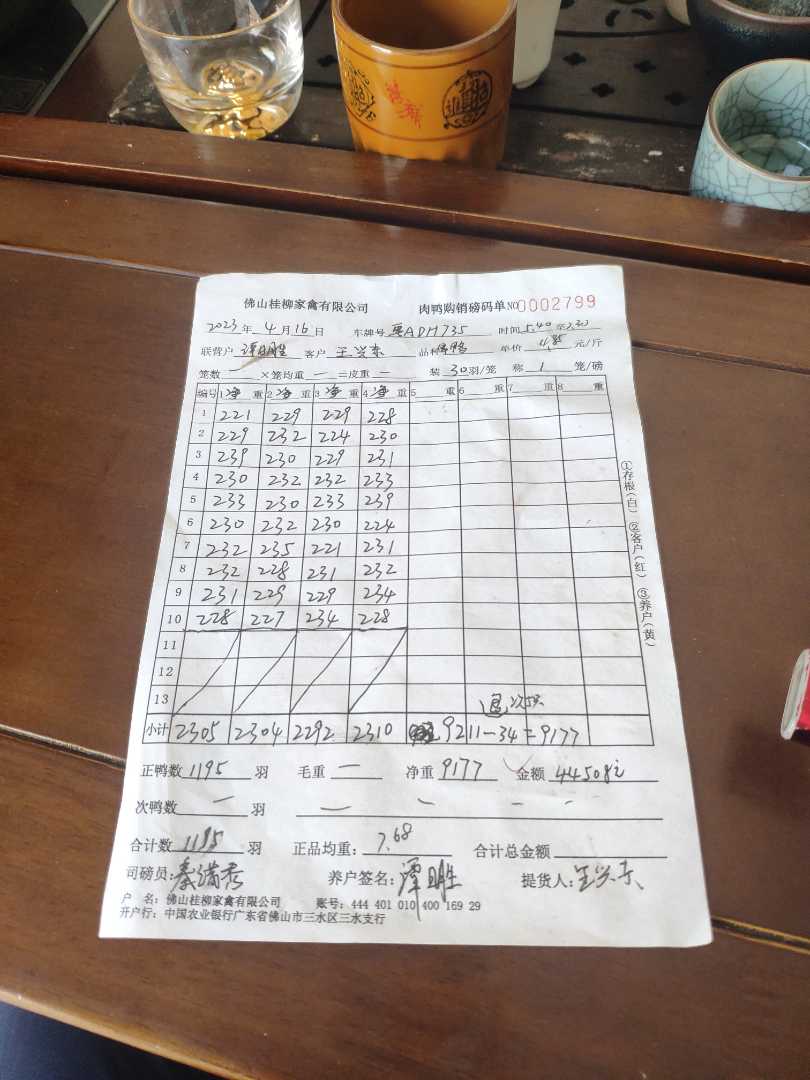 佛山桂柳家禽有限公司 肉鸭购销磅码单 NO 0002799
2023年 4月16日 车牌号 粤ADM735 时间 5.40至7.30
联营户 谭日胜 客户 王兴东 品种 鸭 单价 4.85 元/斤
笼数 ×笼均重 一 =皮重 一 装 30 羽/笼 称 1 笼/磅
编号 1 净 重 2 净 重 3 净 重 4 净 重 5 重 6 重 7 重 8 重
1 221 229 229 228
2 229 232 224 230
3 239 230 229 231
4 230 232 232 233
5 233 230 233 239
6 230 232 230 224
7 232 235 221 231
8 232 228 231 232
9 231 229 229 234
10 228 227 234 228
11
12
13
退 次
小计 2305 2304 2292 2310 9211-34=9177
正鸭数 1195 羽 毛重 一 净重 9177 金额 44508元
次鸭数 一 羽 一 一 一 一
合计数 1195 羽 正品均重: 7.68 合计总金额
司磅员: 秦满秀 养户签名: 谭日胜 提货人: 王兴东
户 名: 佛山桂柳家禽有限公司 账号: 444 401 010 400 169 29
开户行: 中国农业银行广东省佛山市三水区三水支行
①存根(白) ②客户(红) ③养户(黄)